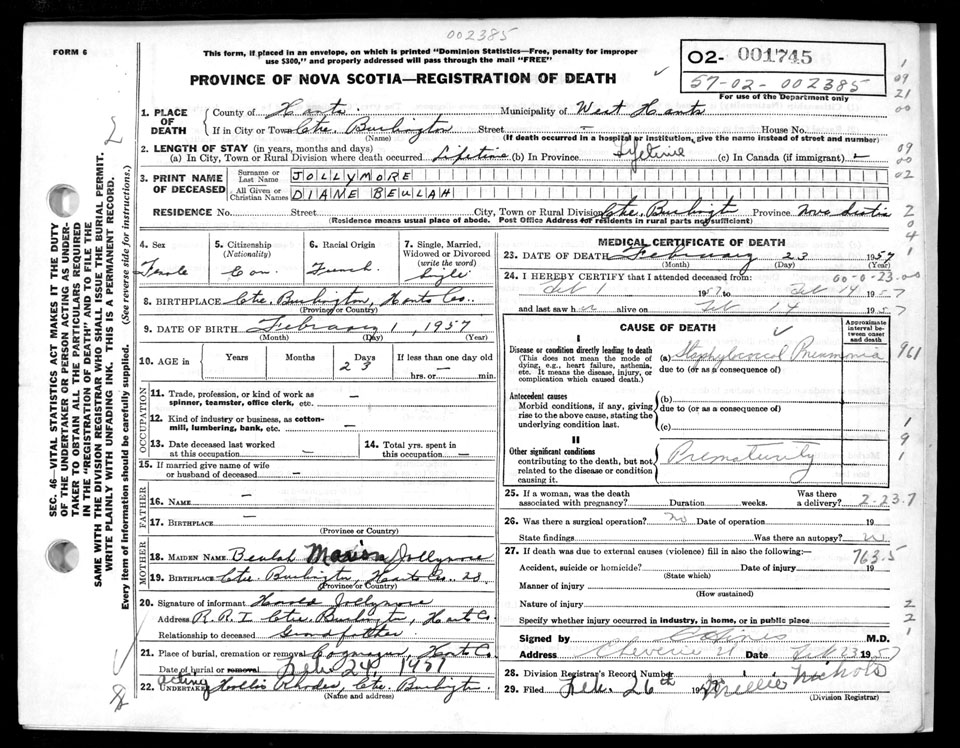 002385
FORM 6
This form, if placed in an envelope, on which is printed "Dominion Statistics—Free, penalty for improper
use $300," and properly addressed will pass through the mail "FREE"
PROVINCE OF NOVA SCOTIA—REGISTRATION OF DEATH
02- 001745
57-02-002385
For use of the Department only
SEC. 46—VITAL STATISTICS ACT MAKES IT THE DUTY
OF THE UNDERTAKER OR PERSON ACTING AS UNDER-
TAKER TO OBTAIN ALL THE PARTICULARS REQUIRED
IN THE "REGISTRATION OF DEATH" AND TO FILE THE
SAME WITH THE DIVISION REGISTRAR WHO SHALL ISSUE THE BURIAL PERMIT.
WRITE PLAINLY WITH UNFADING INK. THIS IS A PERMANENT RECORD.
Every item of information should be carefully supplied. (See reverse side for instructions.)
1. PLACE OF DEATH
County of Hants Municipality of West Hants
If in City or Town Ctre. Burlington Street — House No.
(Name) (If death occurred in a hospital or institution, give the name instead of street and number)
2. LENGTH OF STAY (in years, months and days)
(a) In City, Town or Rural Division where death occurred Lifetime (b) In Province Lifetime (c) In Canada (if immigrant) —
3. PRINT NAME OF DECEASED
Surname or Last Name JOLLYMORE
All Given or Christian Names DIANE BEULAH
RESIDENCE No. Street City, Town or Rural Division Ctre. Burlingt Province Nova Scotia
(Residence means usual place of abode. Post Office Address for residents in rural parts not sufficient)
4. Sex Female
5. Citizenship (Nationality) Can.
6. Racial Origin French
7. Single, Married, Widowed or Divorced (write the word) Single
8. BIRTHPLACE Ctre. Burlington, Hants Co.
(Province or Country)
9. DATE OF BIRTH February 1, 1957
(Month) (Day) (Year)
10. AGE in Years Months Days 23 If less than one day old hrs. or — min.
OCCUPATION
11. Trade, profession, or kind of work as spinner, teamster, office clerk, etc. —
12. Kind of industry or business, as cotton-mill, lumbering, bank, etc. —
13. Date deceased last worked at this occupation —
14. Total yrs. spent in this occupation —
15. If married give name of wife or husband of deceased —
FATHER
16. NAME —
17. BIRTHPLACE —
(Province or Country)
MOTHER
18. MAIDEN NAME Beulah Marion Jollymore
19. BIRTHPLACE Ctre. Burlington, Hants Co. 23
(Province or Country)
20. Signature of informant Harold Jollymore
Address R.R.1 Ctre. Burlington, Hants Co.
Relationship to deceased Grandfather
21. Place of burial, cremation or removal Hants Co.
Date of burial or removal Feb. 24, 1957
acting
22. UNDERTAKER Hollis Rhodes, Ctre. Burlington
(Name and address)
MEDICAL CERTIFICATE OF DEATH
23. DATE OF DEATH February 23 1957
(Month) (Day) (Year)
24. I HEREBY CERTIFY that I attended deceased from: 00-0-23-00
Feb 1 1957 to Feb 14 1957
and last saw h alive on Feb 14 1957
CAUSE OF DEATH
Approximate interval between onset and death
I
Disease or condition directly leading to death
(This does not mean the mode of dying, e.g., heart failure, asthenia, etc. It means the disease, injury, or complication which caused death.)
(a) Staphylococcal Pneumonia
due to (or as a consequence of)
Antecedent causes
Morbid conditions, if any, giving rise to the above cause, stating the underlying condition last.
(b)
due to (or as a consequence of)
(c)
II
Other significant conditions
contributing to the death, but not related to the disease or condition causing it.
Prematurity
25. If a woman, was the death associated with pregnancy? Duration weeks. Was there a delivery? 2-23.7
26. Was there a surgical operation? no Date of operation 19
State findings Was there an autopsy? no
27. If death was due to external causes (violence) fill in also the following:— 763.5
Accident, suicide or homicide? Date of injury 19
(State which)
Manner of injury
(How sustained)
Nature of injury
Specify whether injury occurred in industry, in home, or in public place
Signed by M.D.
Address Cheverie Date Feb 23 1957
28. Division Registrar's Record Number
29. Filed Feb. 26th 19 Millie Nichols
(Division Registrar)